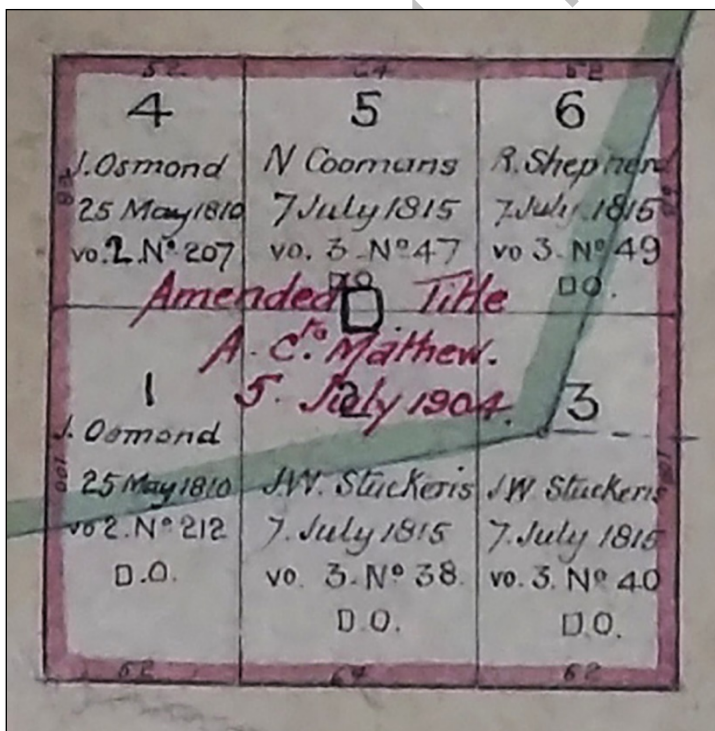 52
64
62
4
J. Osmond
25 May 1810
vo. 2. Nº 207
5
N Coomans
7 July 1815
vo. 3. Nº 47
D.O.
6
R. Shepherd
7 July 1815
vo 3. Nº 49
D.O.
Amended Title
to
A. C. Mathew.
5. July 1904.
1
J. Osmond
25 May 1810
vo 2. Nº 212
D.O.
2
J.W. Stuckeris
7. July 1815
vo. 3. Nº 38.
D.O.
3
J W Stuckeris
7. July 1815
vo. 3. Nº 40
D.O.
100
62
64
62